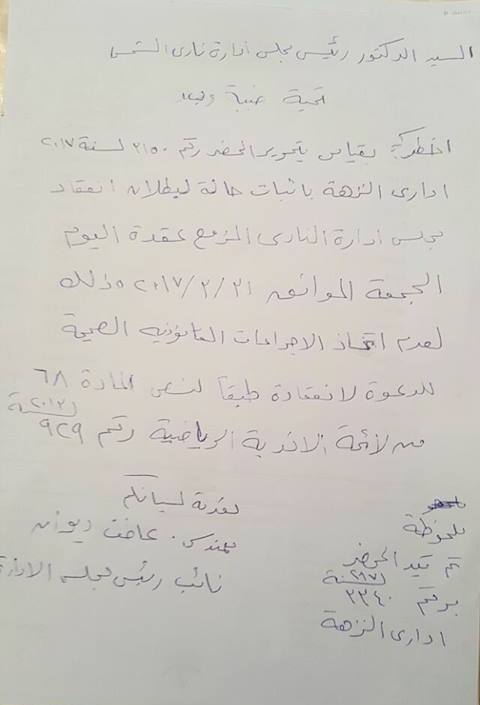 السيد الدكتور رئيس مجلس ادارة نادى الشمس
تحية طيبة وبعد
اخطركم بقيامى بتحرير المحضر رقم ٢١٥٠ لسنة ٢٠١٧
ادارى النزهة باثبات حالة لبطلان انعقاد
مجلس ادارة النادى المزمع عقدة اليوم
الجمعة الموافق ٣١/٣/٢٠١٧ وذلك
لعدم اتخاذ الاجراءات القانونيه الصحيحة
للدعوة لانعقادة طبقاً لنص المادة ٦٨
من لائحة الاندية الرياضية رقم ٩٢٩ لسنة ٢٠١٣
مهندس. عاطف
نائب رئيس مجلس الادارة
ملحوظة
تم قيد المحضر
برقم ٣٣٤٠ لسنة ٢٠١٧
ادارى النزهة